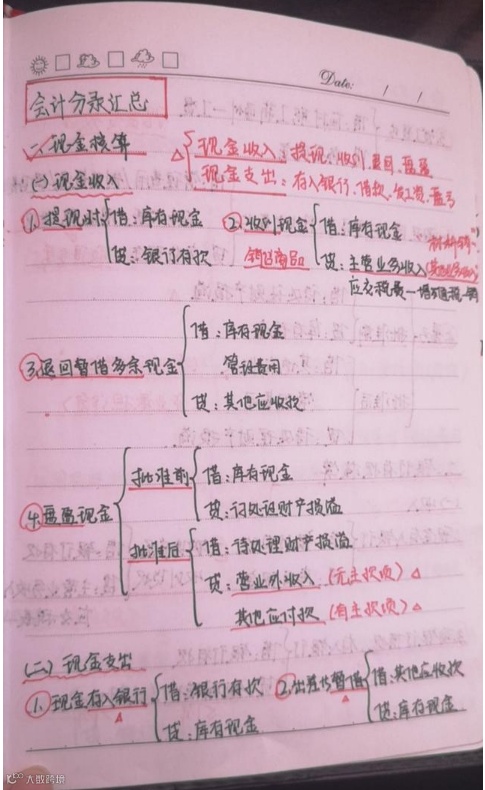 Date: / /
会计分录汇总
一、现金核算
△ 现金收入：提现、收到、退回、盘盈
现金支出：存入银行、借款、发工资、盘亏
(一)现金收入
1.提现时 借：库存现金
贷：银行存款
2.收到现金 销售商品 借：库存现金
贷：主营业务收入(其他业务收入)
应交税费一增
3.退回暂借多余现金 借：库存现金
管理费用
贷：其他应收款
4.盘盈现金
批准前 借：库存现金
贷：待处理财产损溢
批准后 借：待处理财产损溢
贷：营业外收入 (无主款项) △
其他应付款 (有主款项) △
(二) 现金支出
1.现金存入银行 △ 借：银行存款
贷：库存现金
2.出差暂借 △ 借：其他应收款
贷：库存现金
大数跨境